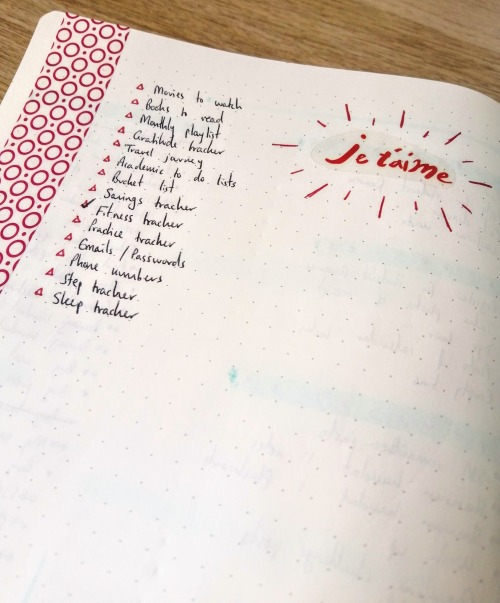 Movies to watch
Books to read
Monthly playlist
Gratitude tracker
Travel journey
Academic to do lists
Bucket list
Savings tracker
Fitness tracker
Practice tracker
Emails / Passwords
Phone numbers
Step tracker
Sleep tracker
je t'aime